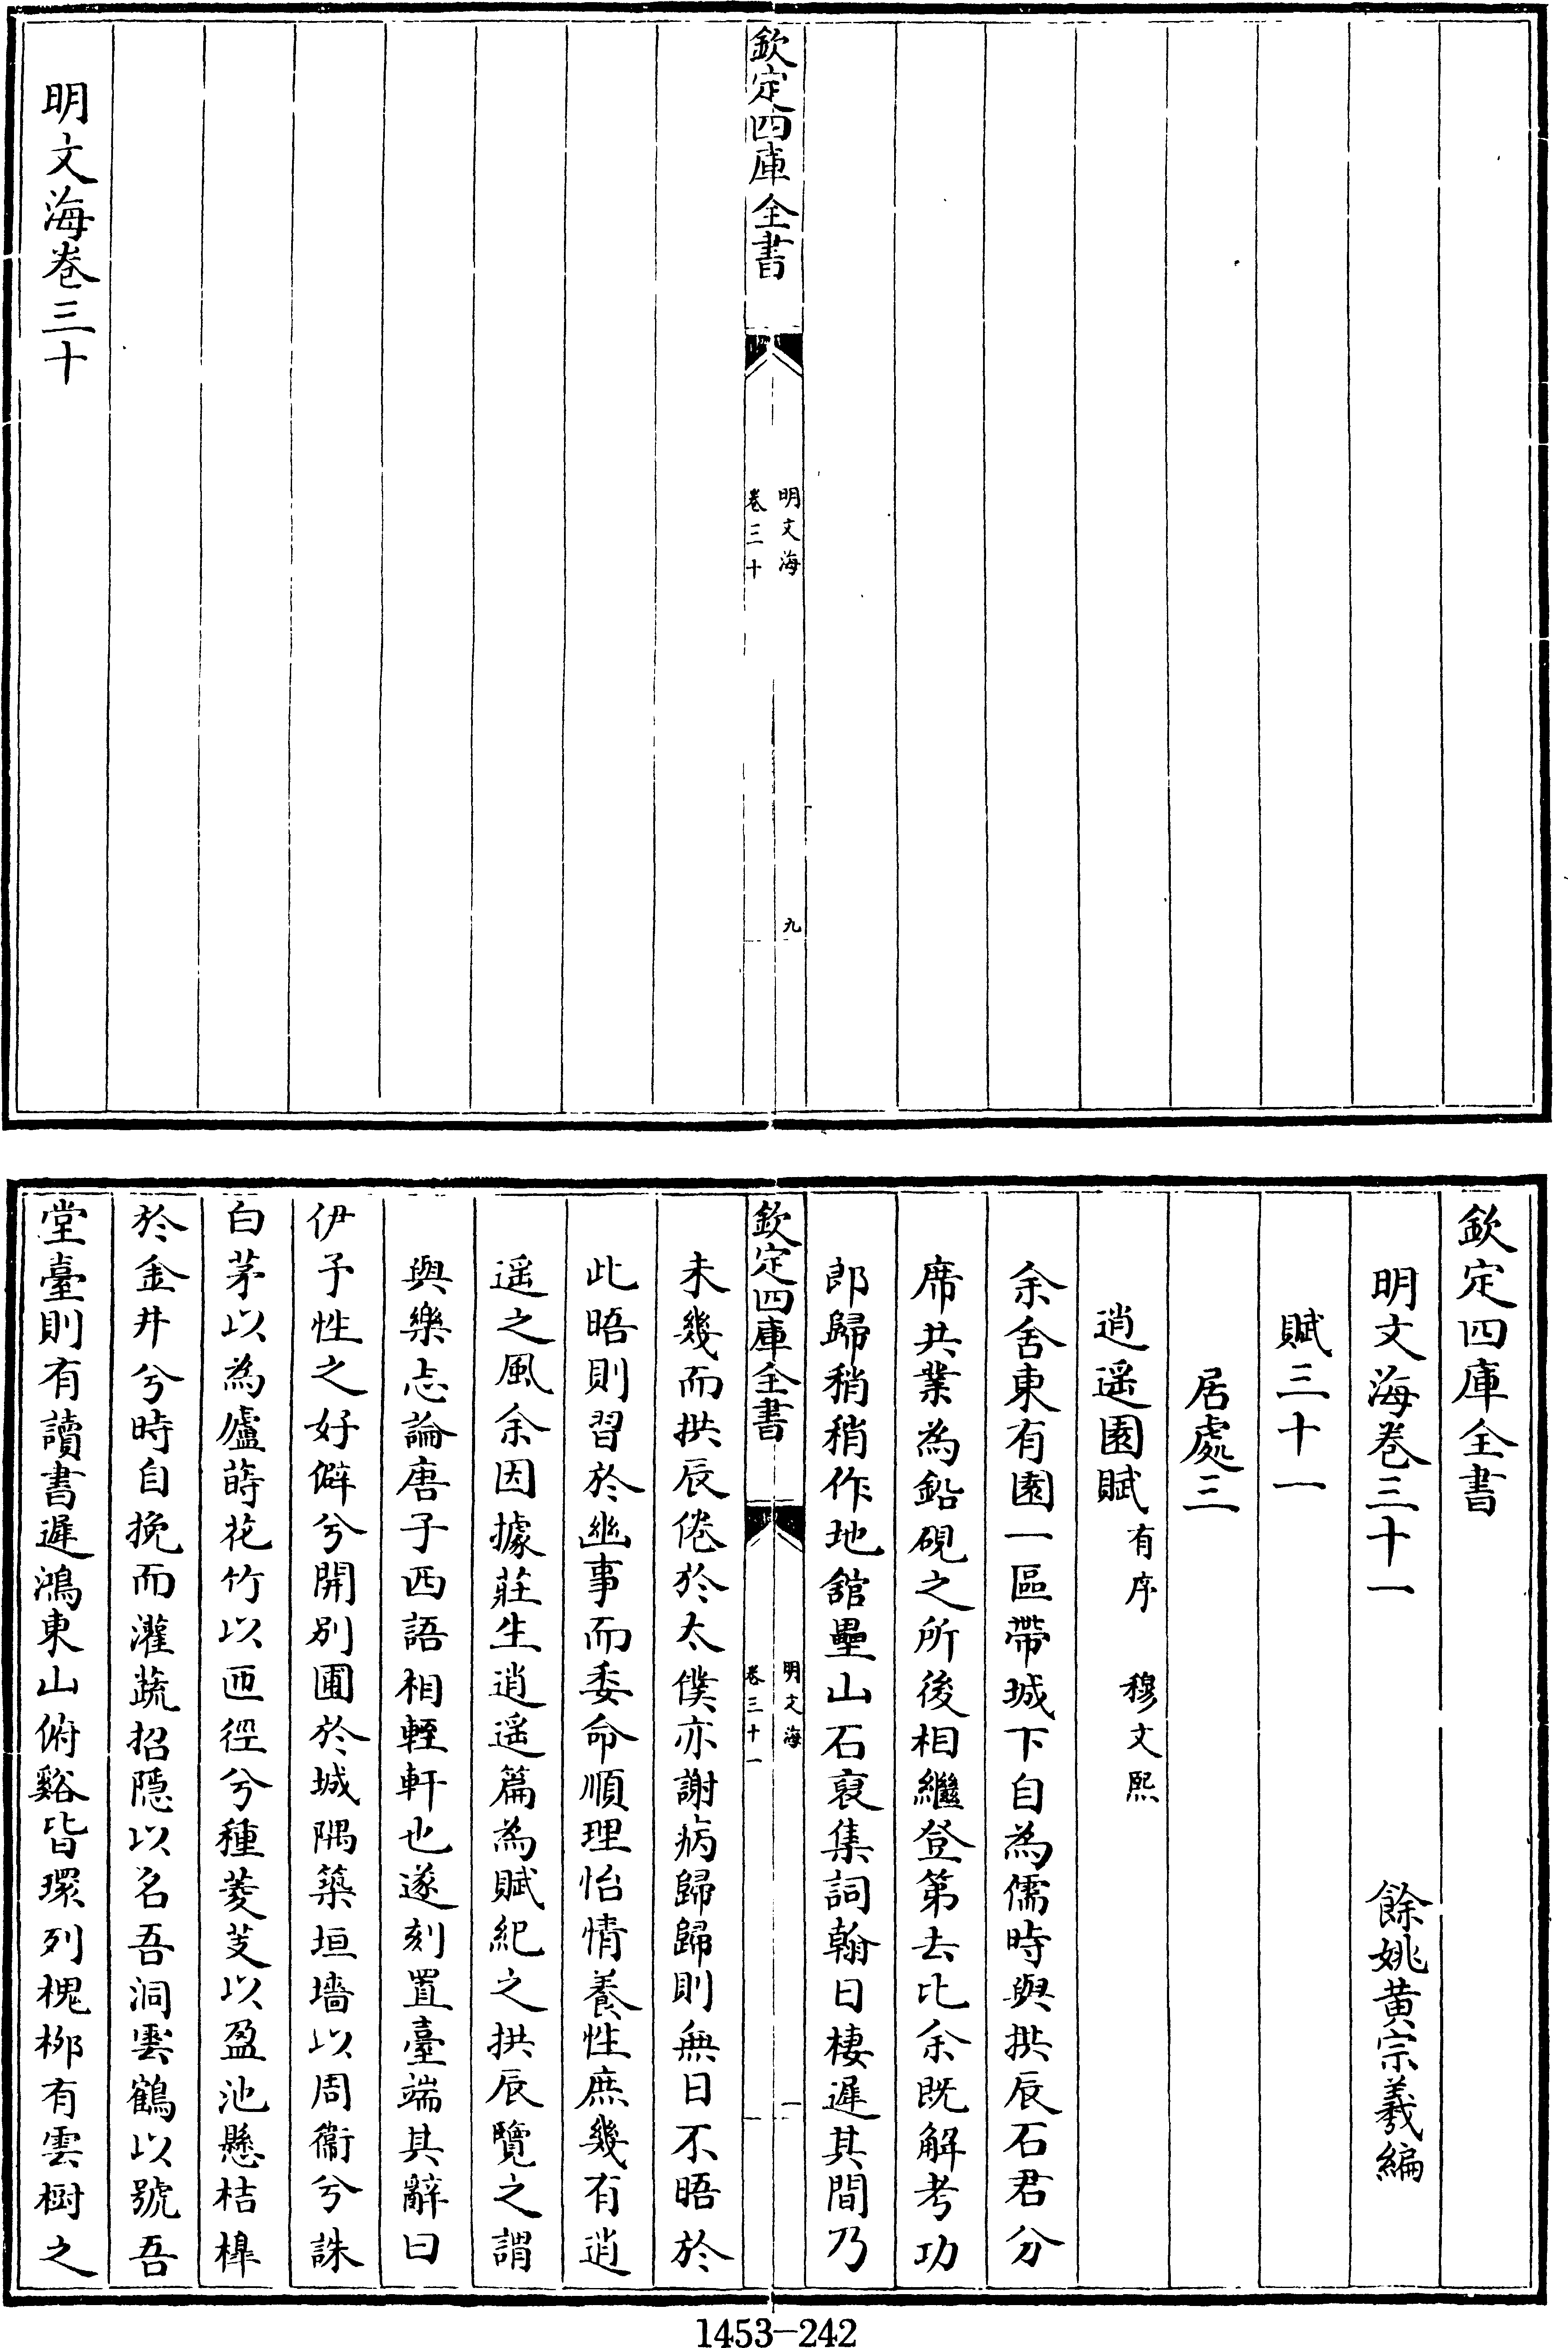 欽定四庫全書
明文海
卷三十
九
明文海卷三十
欽定四庫全書
明文海卷三十一
餘姚黃宗羲編
賦三十一
居處三
逍遥園賦有序 穆文熙
余舍東有園一區帶城下自為儒時與拱辰石君分
席共業為鉛硯之所後相繼登第去比余既解考功
郎歸稍稍作地舘壘山石裒集詞翰日棲遲其間乃
欽定四庫全書
明文海
卷三十一
一
未幾而拱辰倦於太僕亦謝病歸歸則無日不晤於
此晤則習於幽事而委命順理怡情養性庶幾有逍
遥之風余因據莊生逍遥篇為賦紀之拱辰覽之謂
與樂志論唐子西語相輊軒也遂刻置臺端其辭曰
伊予性之好僻兮開别圃於城隅築垣墻以周衞兮誅
白茅以為廬蒔花竹以匝徑兮種菱芰以盈池懸桔槔
於金井兮時自挽而灌蔬招隱以名吾洞雲鶴以號吾
堂臺則有讀書遲鴻東山俯谿皆環列槐栁有雲樹之
1453-242